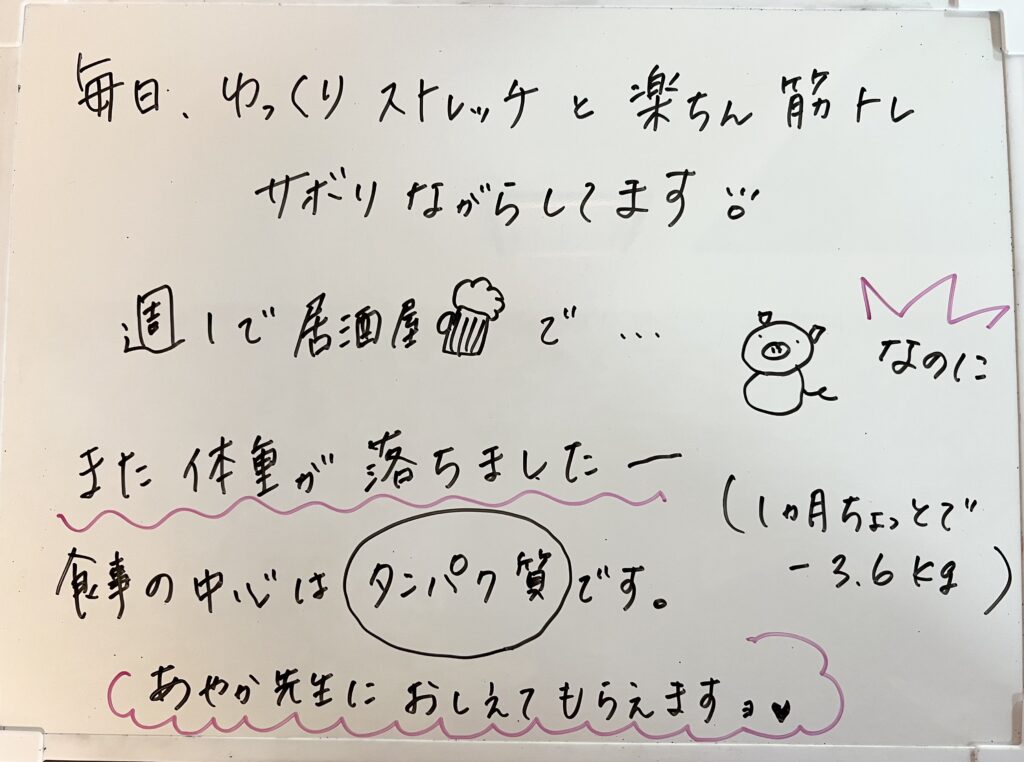 毎日、ゆっくりストレッチと楽ちん筋トレ
サボりながらしてます
週1で居酒屋で…
なのに
また体重が落ちましたー
(1ヵ月ちょっとで
-3.6kg)
食事の中心はタンパク質です。
あやか先生におしえてもらえますョ♥